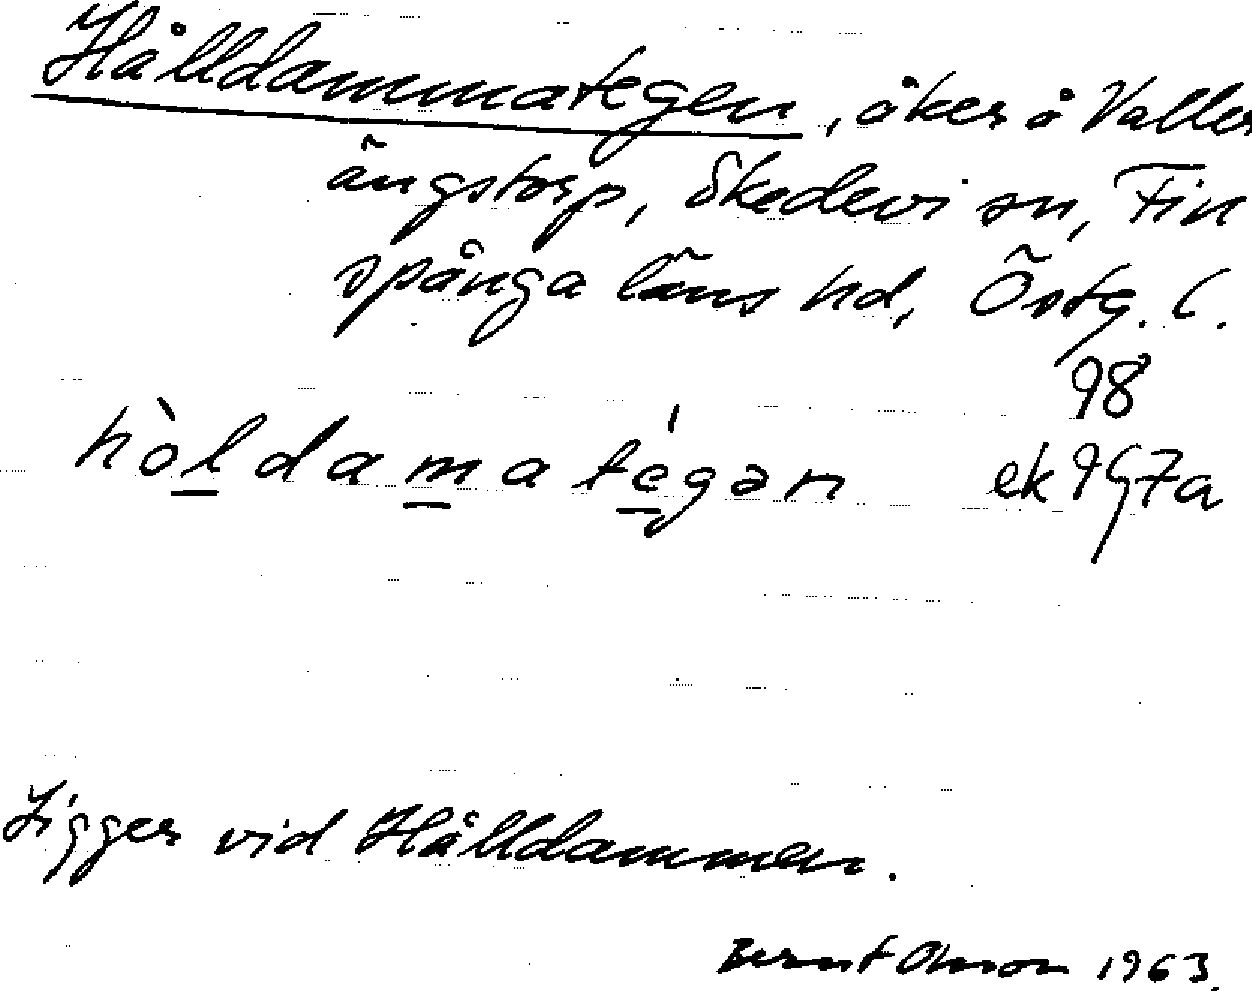 Hålldammategen, åker å Valler
ängstorp, Skedevi sn, Fin
spånga läns hd, Östg. l.
98
hòldamatégən ek 957a
Ligger vid Hålldammen.
Bernt Olsson 1963.